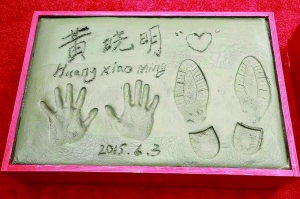 黄晓明 "♡"
Huang Xiao Ming
2015.6.3